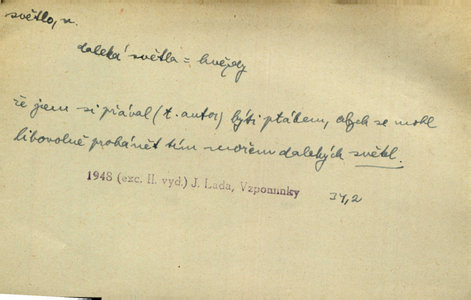 světlo, n.
daleká světla = hvězdy
že jsem si přával (t. autor) býti ptákem, abych se mohl
libovolně prohánět tím mořem dalekých světel.
1948 (exc. II. vyd.) J. Lada, Vzpomínky 34,2